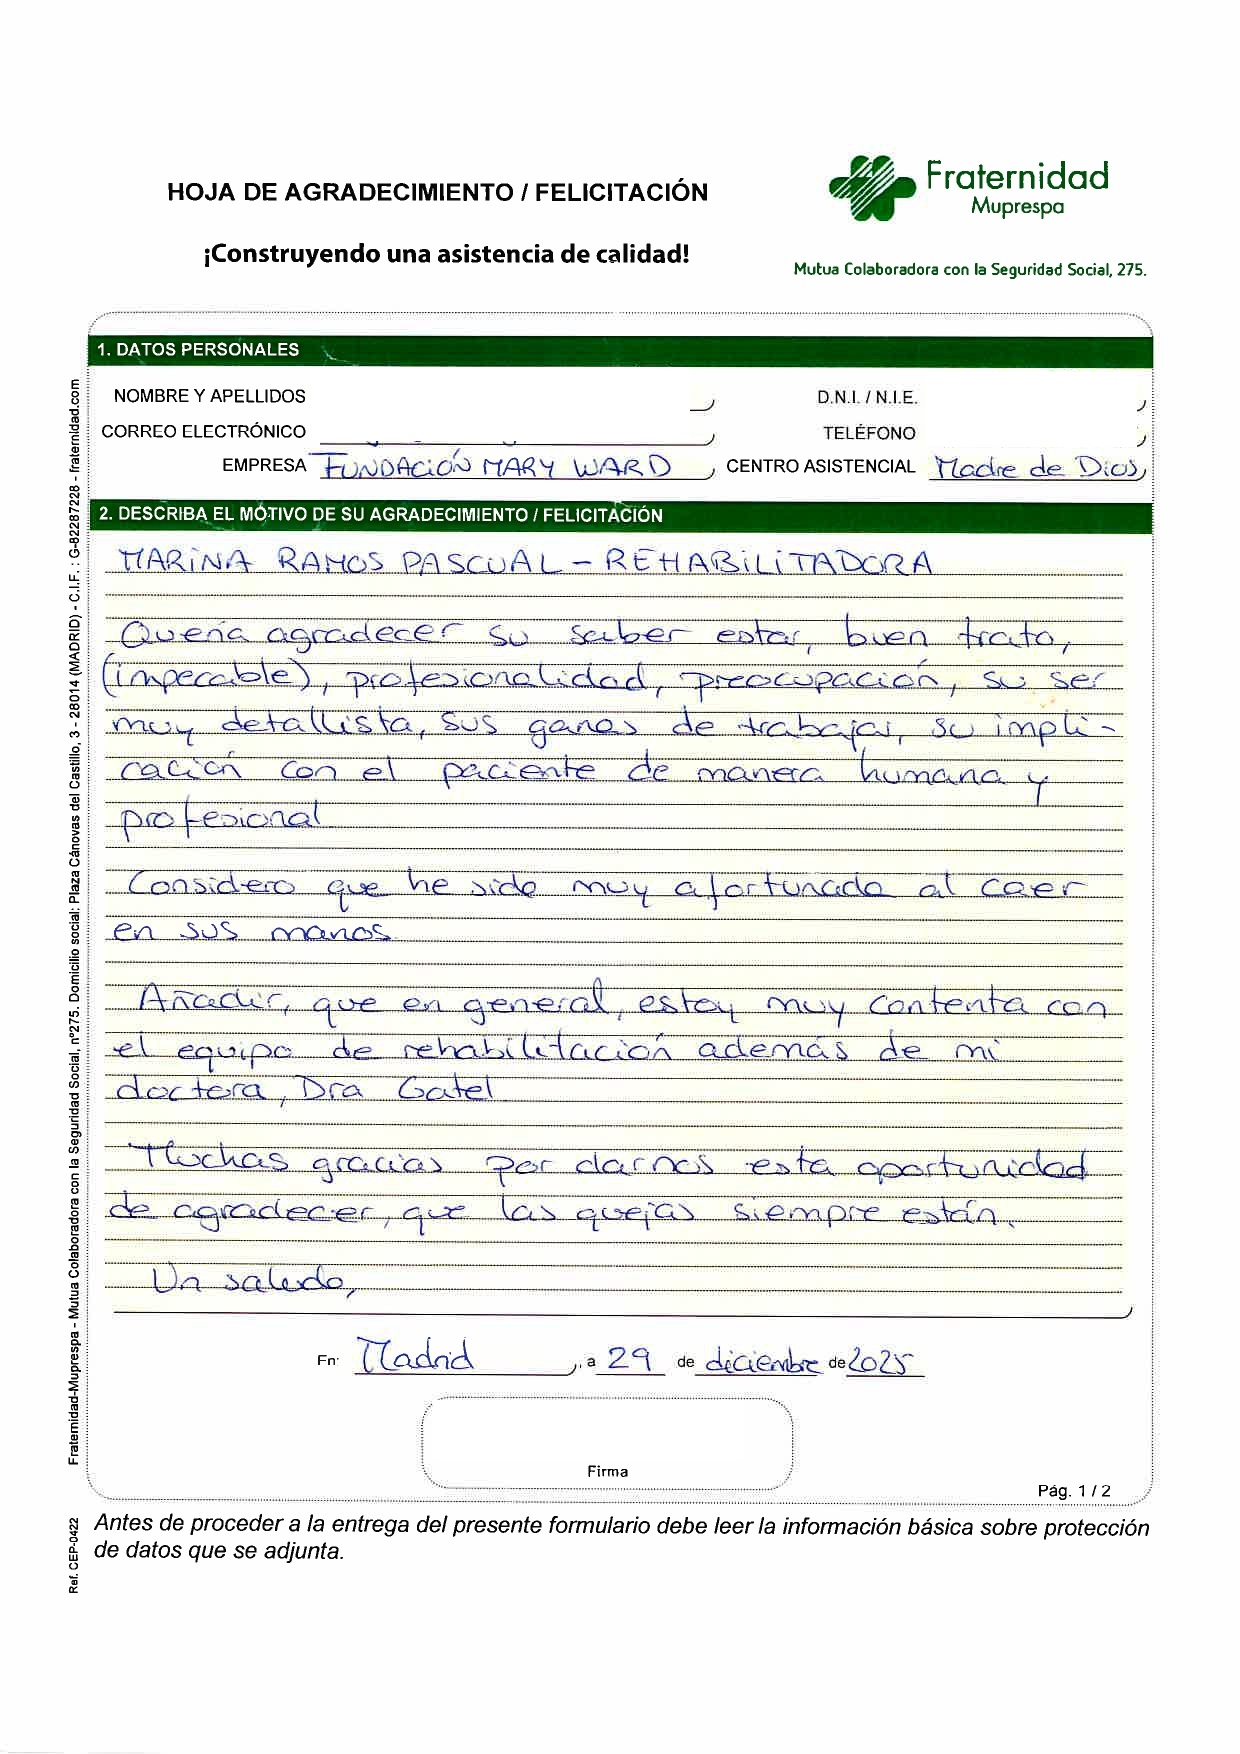 HOJA DE AGRADECIMIENTO / FELICITACIÓN
¡Construyendo una asistencia de calidad!
Fraternidad
Muprespa
Mutua Colaboradora con la Seguridad Social, 275.
1. DATOS PERSONALES
NOMBRE Y APELLIDOS
D.N.I. / N.I.E.
CORREO ELECTRÓNICO
TELÉFONO
EMPRESA FUNDACIÓN MARY WARD CENTRO ASISTENCIAL Madre de Dios
2. DESCRIBA EL MOTIVO DE SU AGRADECIMIENTO / FELICITACIÓN
MARINA RAMOS PASCUAL - REHABILITADORA
Quería agradecer su saber estar, buen trato,
(impecable), profesionalidad, preocupación, su ser
muy detallista, sus ganas de trabajar, su impli-
cación con el paciente de manera humana y
profesional
Considero que he sido muy afortunada al caer
en sus manos.
Añadir, que en general, estoy muy contenta con
el equipo de rehabilitación además de mi
doctora, Dra Gatel
Muchas gracias por darnos esta oportunidad
de agradecer, que las quejas siempre están.
Un saludo,
En Madrid, a 29 de diciembre de 2025
Firma
Pág. 1 / 2
Antes de proceder a la entrega del presente formulario debe leer la información básica sobre protección
de datos que se adjunta.
Fraternidad-Muprespa - Mutua Colaboradora con la Seguridad Social, nº275. Domicilio social: Plaza Cánovas del Castillo, 3 - 28014 (MADRID) - C.I.F. : G-82287228 - fraternidad.com
Ref. CEP-0422